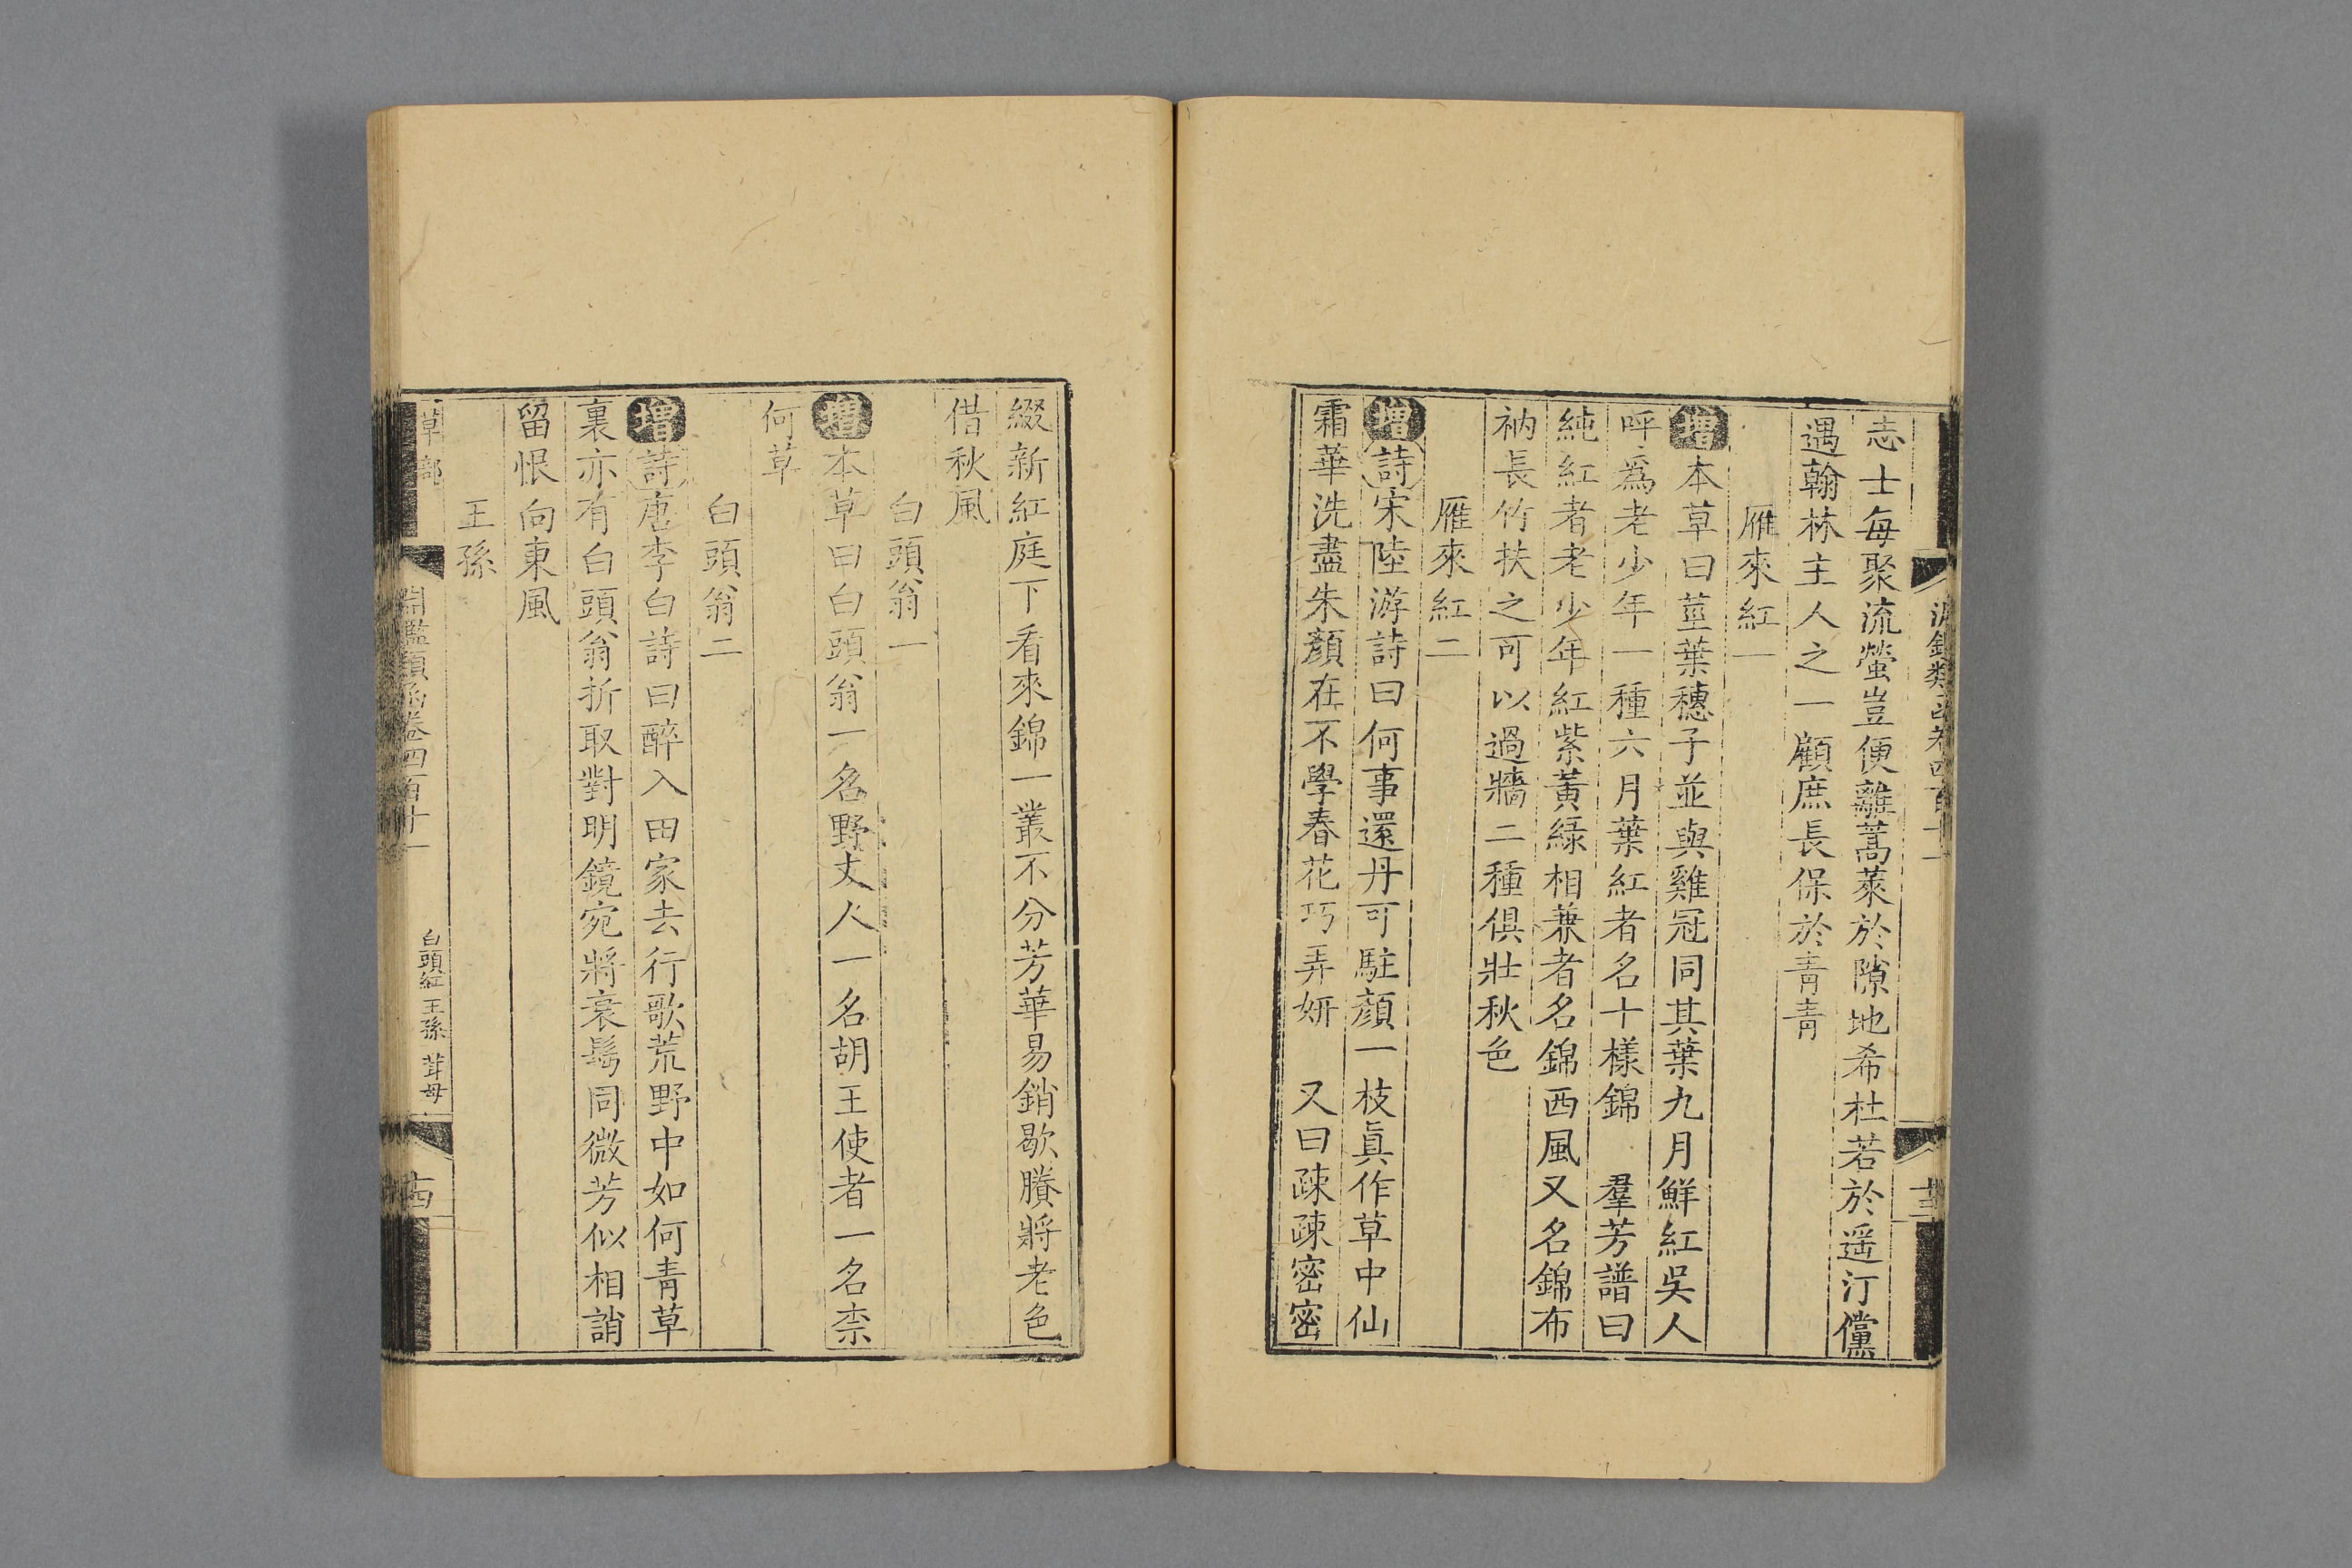 志士每聚流螢豈便離蒿萊於隙地希杜若於遥汀儻
遇翰林主人之一顧庶長保於青青
雁來紅一
增本草曰莖葉穗子並與雞冠同其葉九月鮮紅吳人
呼爲老少年一種六月葉紅者名十樣錦 羣芳譜曰
純紅者老少年紅紫黃綠相兼者名錦西風又名錦布
衲長竹扶之可以過牆二種俱壯秋色
雁來紅二
增詩宋陸游詩曰何事還丹可駐顏一枝眞作草中仙
霜華洗盡朱顏在不學春花巧弄妍 又曰疎疎密密
綴新紅庭下看來錦一叢不分芳華易銷歇賸將老色
借秋風
白頭翁一
增本草曰白頭翁一名野丈人一名胡王使者一名柰
何草
白頭翁二
增詩唐李白詩曰醉入田家去行歌荒野中如何青草
裏亦有白頭翁折取對明鏡宛將衰鬂同微芳似相誚
留恨向東風
王孫
草部
淵鑑類函卷四百十一
白頭紅 王孫 茸母
十四